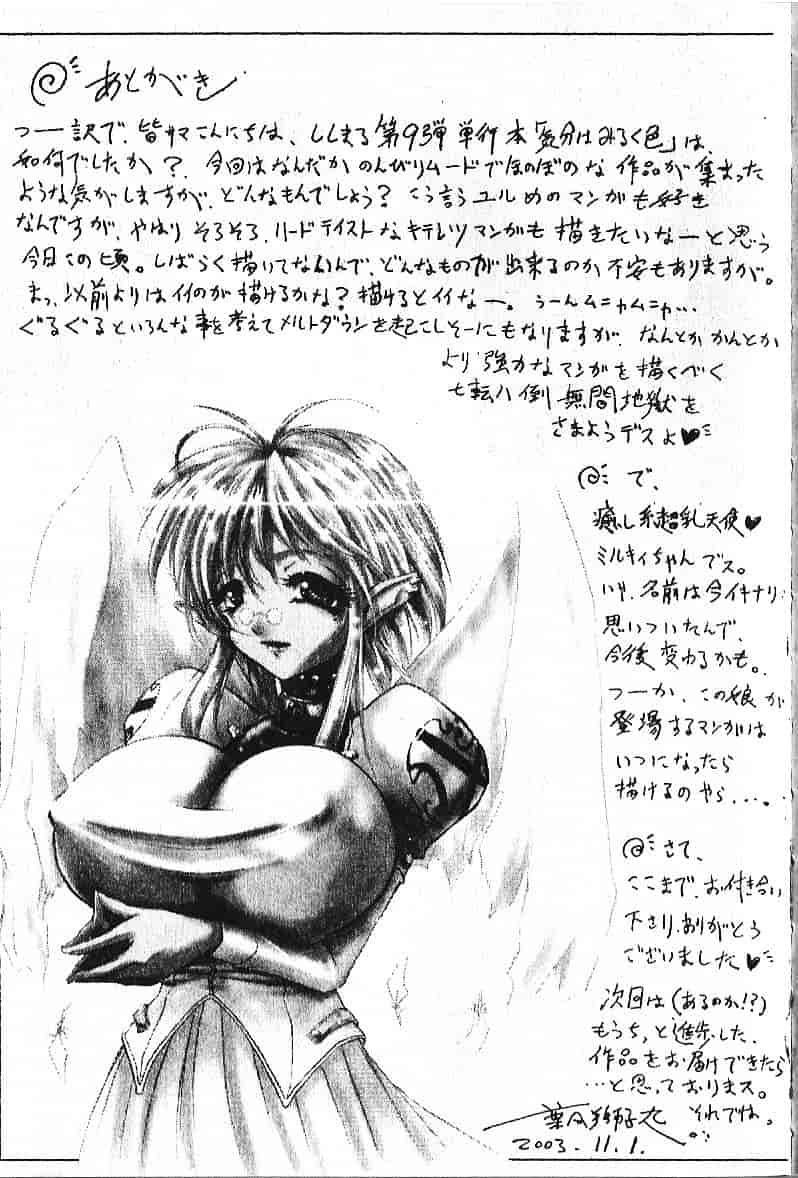 あとがき
つー訳で、皆サマこんにちは、ししまる第9弾単行本「気分はみるく色」は、
如何でしたか?、今回はなんだかのんびりムードでほのぼのな作品が集まった
ような気がしますが、どんなもんでしょう?こう言うユルめのマンガも好き
なんですが、やはりそろそろ、ハードテイストなキテレツマンガも描きたいなーと思う
今日この頃。しばらく描いてないんで、どんなものが出来るのか不安もありますが。
まっ、以前よりはイイのが描けるかな?描けるとイイなー。うーんムニャムニャ…
ぐるぐるといろんな事を考えてメルトダウンを起こしそーにもなりますが、なんとかかんとか
より強力なマンガを描くべく
七転八倒無間地獄を
さまようデスよ♥
で、
癒し系超乳天使♥
ミルキィちゃんデス。
いや、名前は今イキナリ
思いついたんで、
今後変わるかも。
つーか、この娘が
登場するマンガは
いつになったら
描けるのやら…。
さて、
ここまで、お付き合い
下さり、ありがとう
ございました♥
次回は(あるのか!?)
もうちっと進歩した、
作品をお届けできたら
…と思っておりまス。
それでは。
2003.11.1.